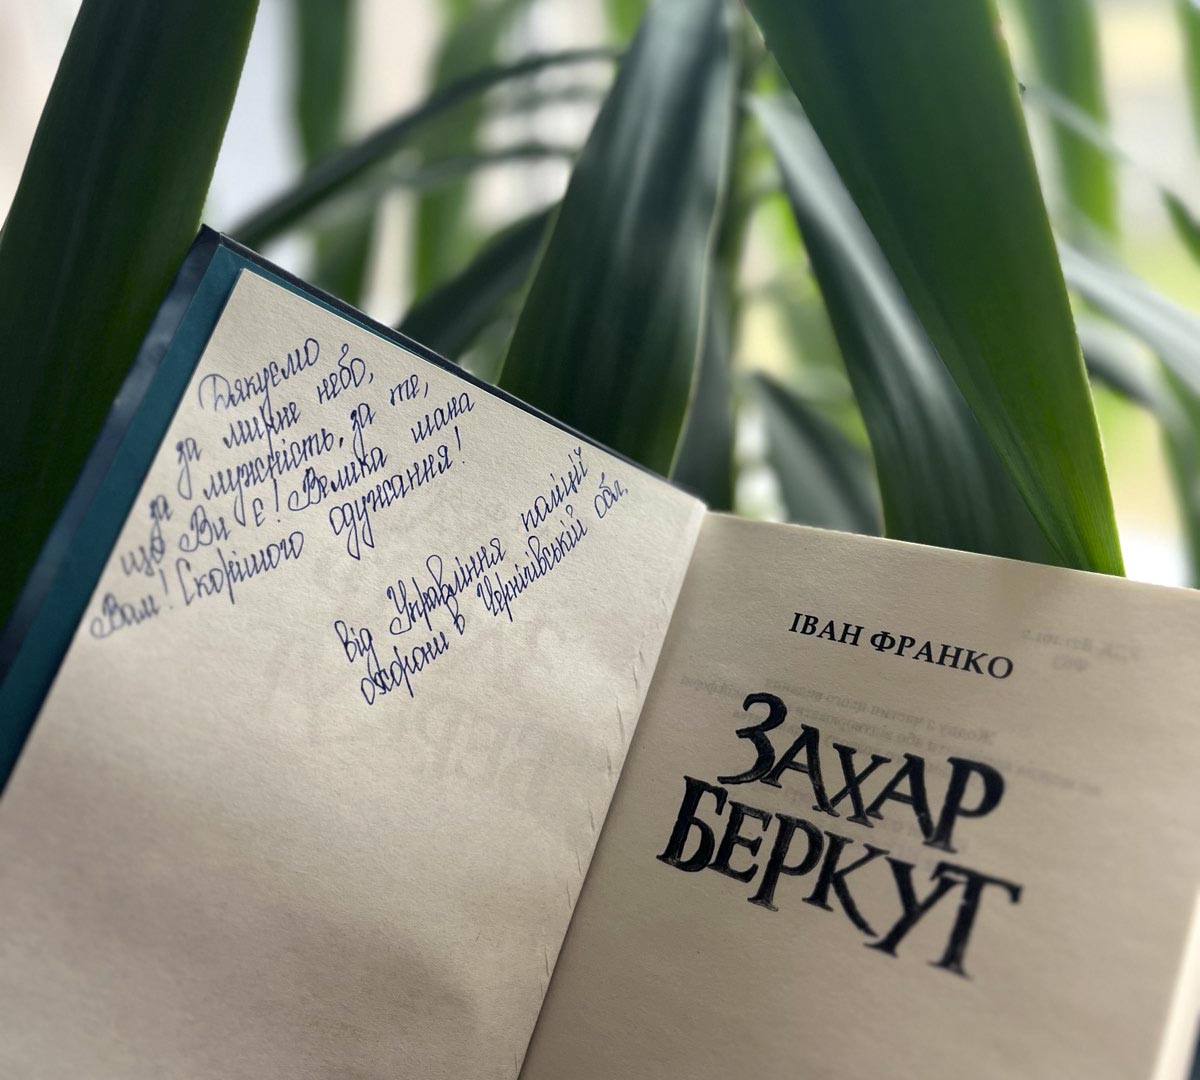 Дякуємо
за мирне небо,
за мужність, за те,
що Ви є! Велика шана
Вам! Скорішого одужання!
від Управління поліції
охорони в Чернігівській обл.
ІВАН ФРАНКО
ЗАХАР
БЕРКУТ